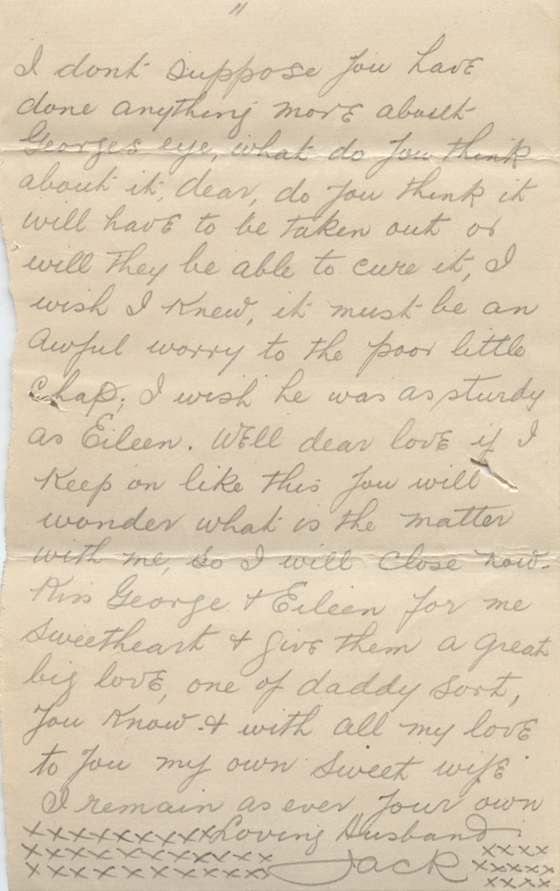 "
I dont suppose you have
done anything more about
Georges eye, what do you think
about it, dear, do you think it
will have to be taken out or
will they be able to cure it, I
wish I knew, it must be an
awful worry to the poor little
chap; I wish he was as sturdy
as Eileen. Well dear love if I
keep on like this you will
wonder what is the matter
with me, so I will close now.
Kiss George & Eileen for me
sweetheart & give them a great
big love, one of daddy sort,
you know & with all my love
to you my own sweet wife
I remain as ever your own
xxxxxxxxxx Loving Husband
xxxxxxxxxxxxx Jack xxxx
xxxxxxxxxxxxx xxxxx
xxxx